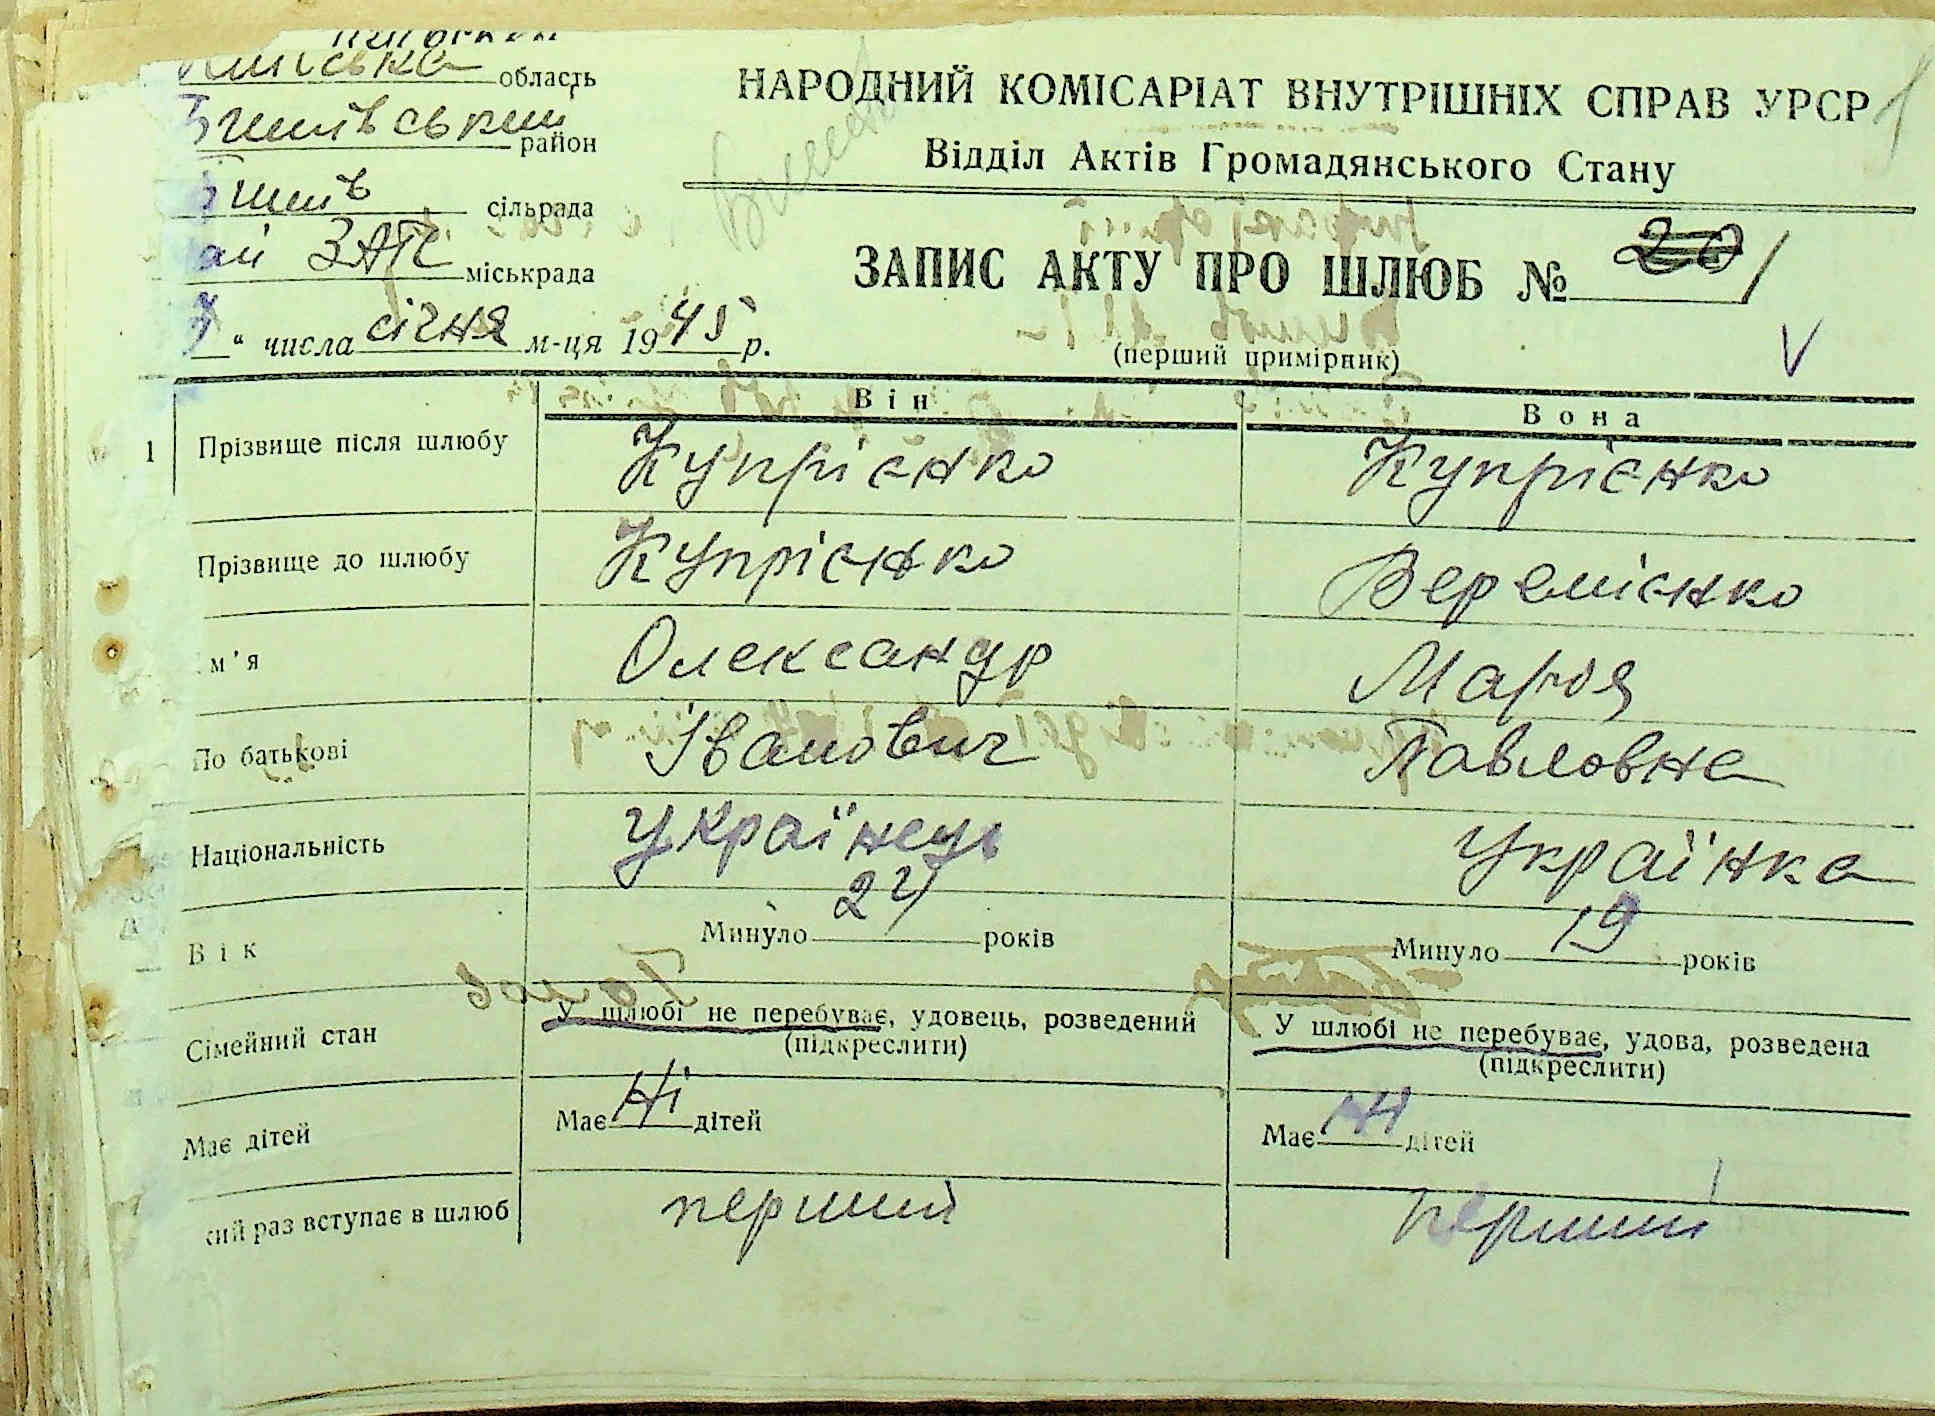 Київська область
Бишівський район
Бишів сільрада
Рай ЗАГС міськрада
" числа січня м-ця 1945 р.
НАРОДНИЙ КОМІСАРІАТ ВНУТРІШНІХ СПРАВ УРСР
Відділ Актів Громадянського Стану
ЗАПИС АКТУ ПРО ШЛЮБ № 20 1
(перший примірник)
V
Він Вона
1 Прізвище після шлюбу Купрієнко Купрієнко
Прізвище до шлюбу Купрієнко Веремієнко
м'я Олександр Марія
По батькові Іванович Павловна
Національність Українець Українка
Вік Минуло 24 років Минуло 19 років
Сімейний стан У шлюбі не перебуває, удовець, розведений У шлюбі не перебуває, удова, розведена
(підкреслити) (підкреслити)
Має дітей Має ні дітей Має ні дітей
кий раз вступає в шлюб перший перший